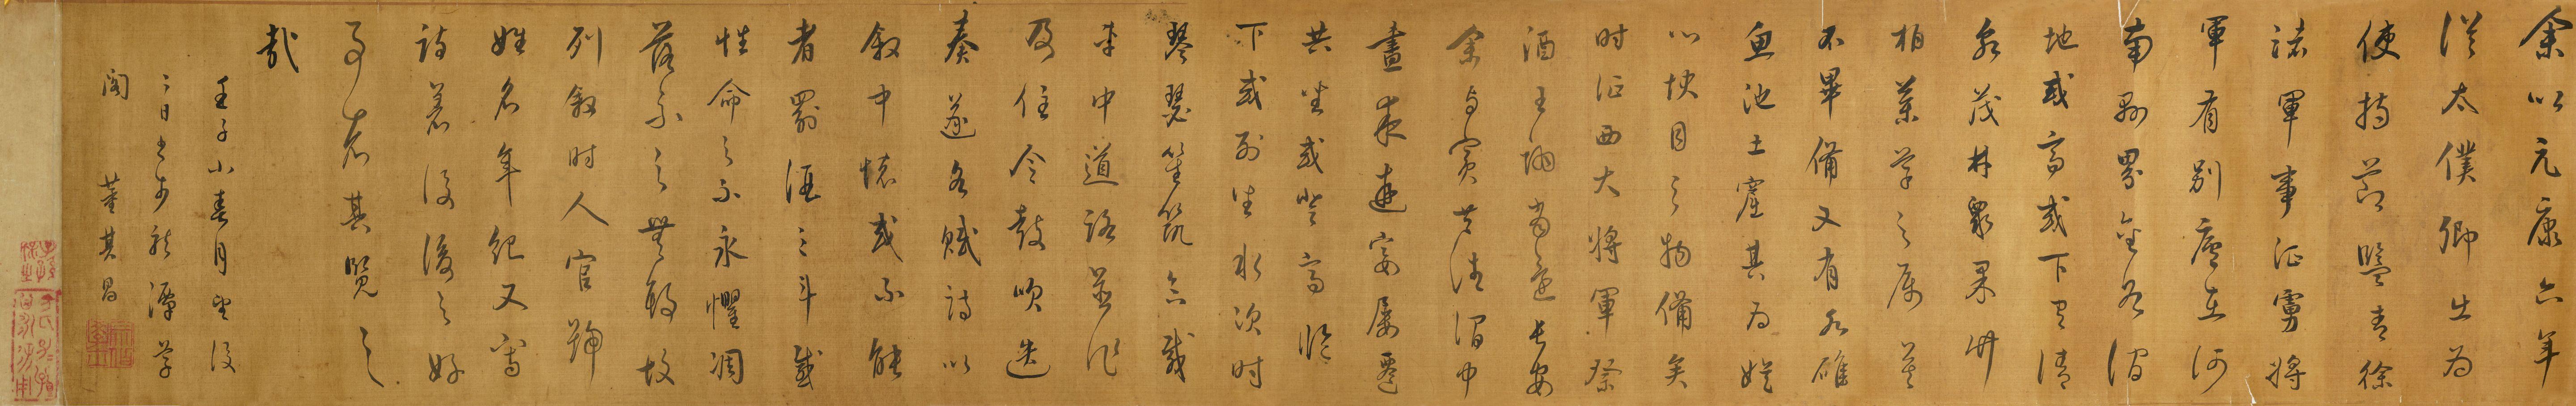 余以元康六年
從太僕卿出為
使持節監青徐
諸軍事征虜將
軍有別廬在河
南縣界金谷澗
地或高或下有清
泉茂林眾果竹
柏藥草之屬莫
不畢備又有水碓
魚池土窟其為娛
心快目之物備矣
時征西大將軍祭
酒王詡當還長安
余與眾賢共送澗中
晝夜遊宴屢遷
其坐或登高臨
下或列坐水次時
琴瑟笙筑合載
車中道路並作
及住令鼓吹迭
奏遂各賦詩以
敘中懷或不能
者罰酒三斗感
性命之不永懼凋
落之無期故
列敘時人官號
姓名年紀又寫
詩著後後之好
事者其覽之
哉
壬子小春月望後
二日書於龍潭學
閣 董其昌